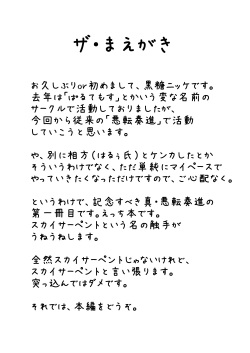 ザ・まえがき
お久しぶりor初めまして、黒糖ニッケです。
去年は「ぱるてもす」とかいう変な名前の
サークルで活動しておりましたが、
今回から従来の「悪転奏進」で活動
していこうと思います。
や、別に相方（はるぅ氏）とケンカしたとか
そういうわけでなく、ただ単純にマイペースで
やっていきたくなっただけですので、ご心配なく。
というわけで、記念すべき真・悪転奏進の
第一冊目です。えっち本です。
スカイサーペントという名の触手が
うねうねします。
全然スカイサーペントじゃないけれど、
スカイサーペントと言い張ります。
突っ込んではダメです。
それでは、本編をどうぞ。